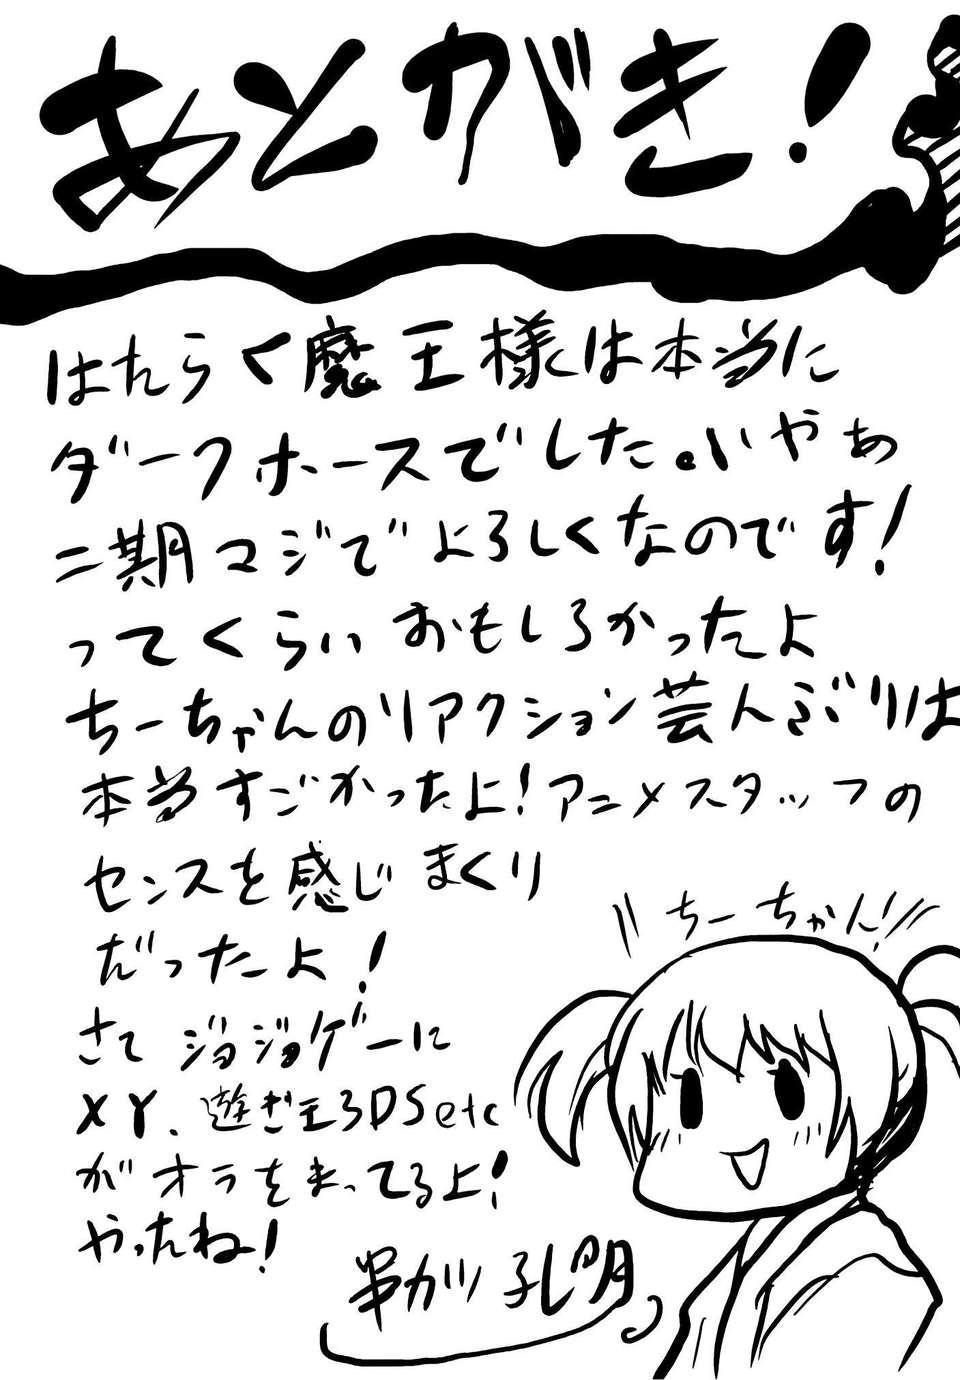 あとがき！
はたらく魔王様は本当に
ダークホースでした。いやぁ
二期マジでよろしくなのです！
ってくらいおもしろかったよ
ちーちゃんのリアクション芸人ぶりは
本当すごかったよ！アニメスタッフの
センスを感じまくり
だったよ！
ちーちゃん！
さてジョジョゲーに
XY、遊ぎ王3DSetc
がオラをまってるよ！
やったね！
串カツ孔明